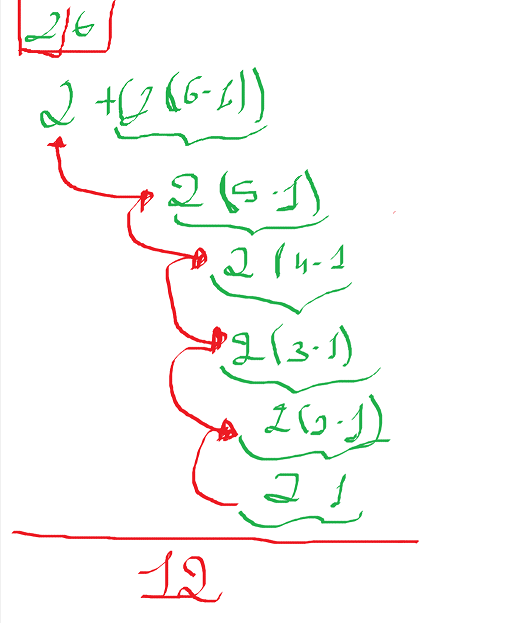 2/6
2 + (2(6-1))
2(5-1)
2(4-1
2(3-1)
2(2-1)
2 1
12